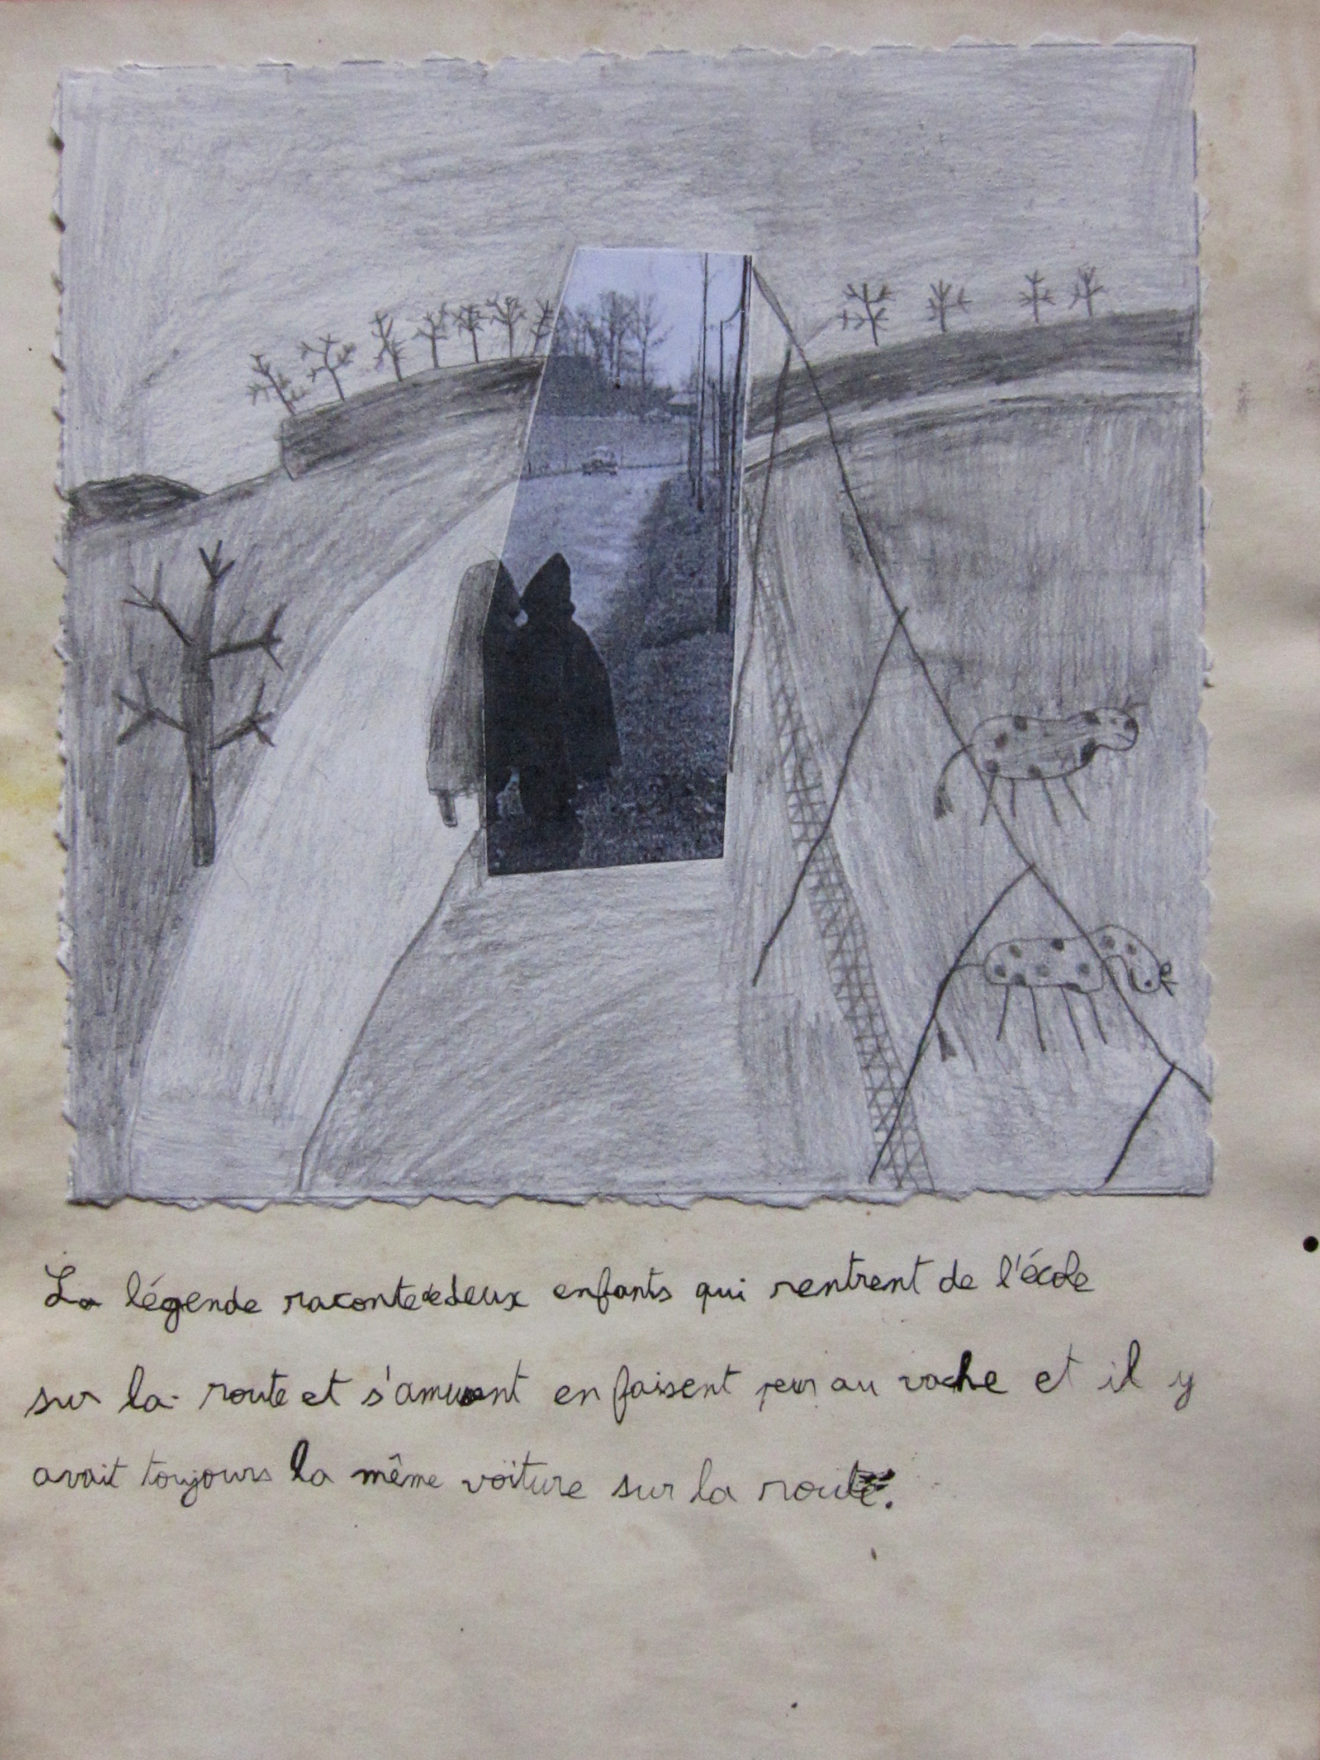 La légende raconte de deux enfants qui rentrent de l'école
sur la route et s'amusent en faisent peur au vache et il y
avait toujours la même voiture sur la route.